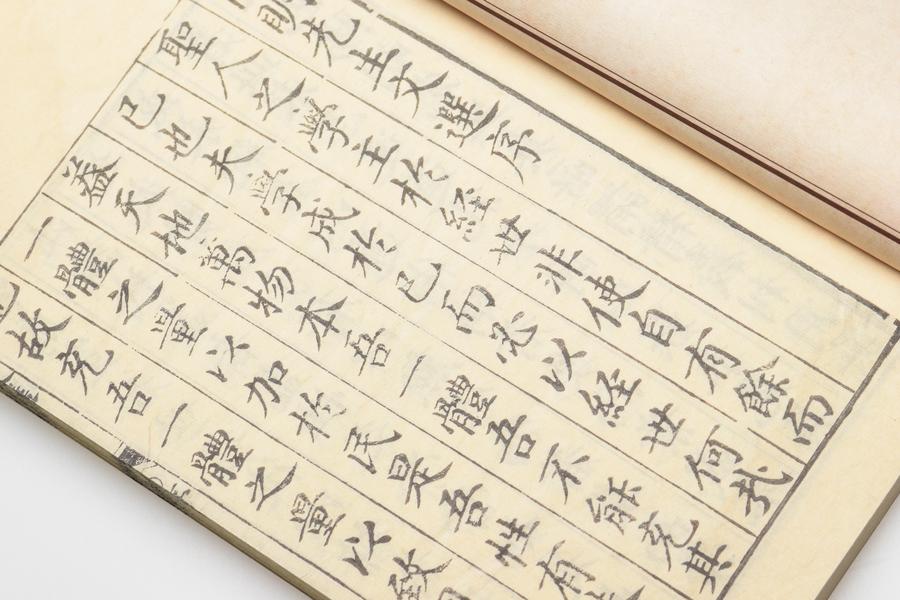 明先生文選序
聖人之學主於經世非使自有餘而
已也夫學成於己而必以經世何哉
蓋天地萬物本吾一體吾不能充其
一體之量以加於民是吾性有
故充吾一體之量以致